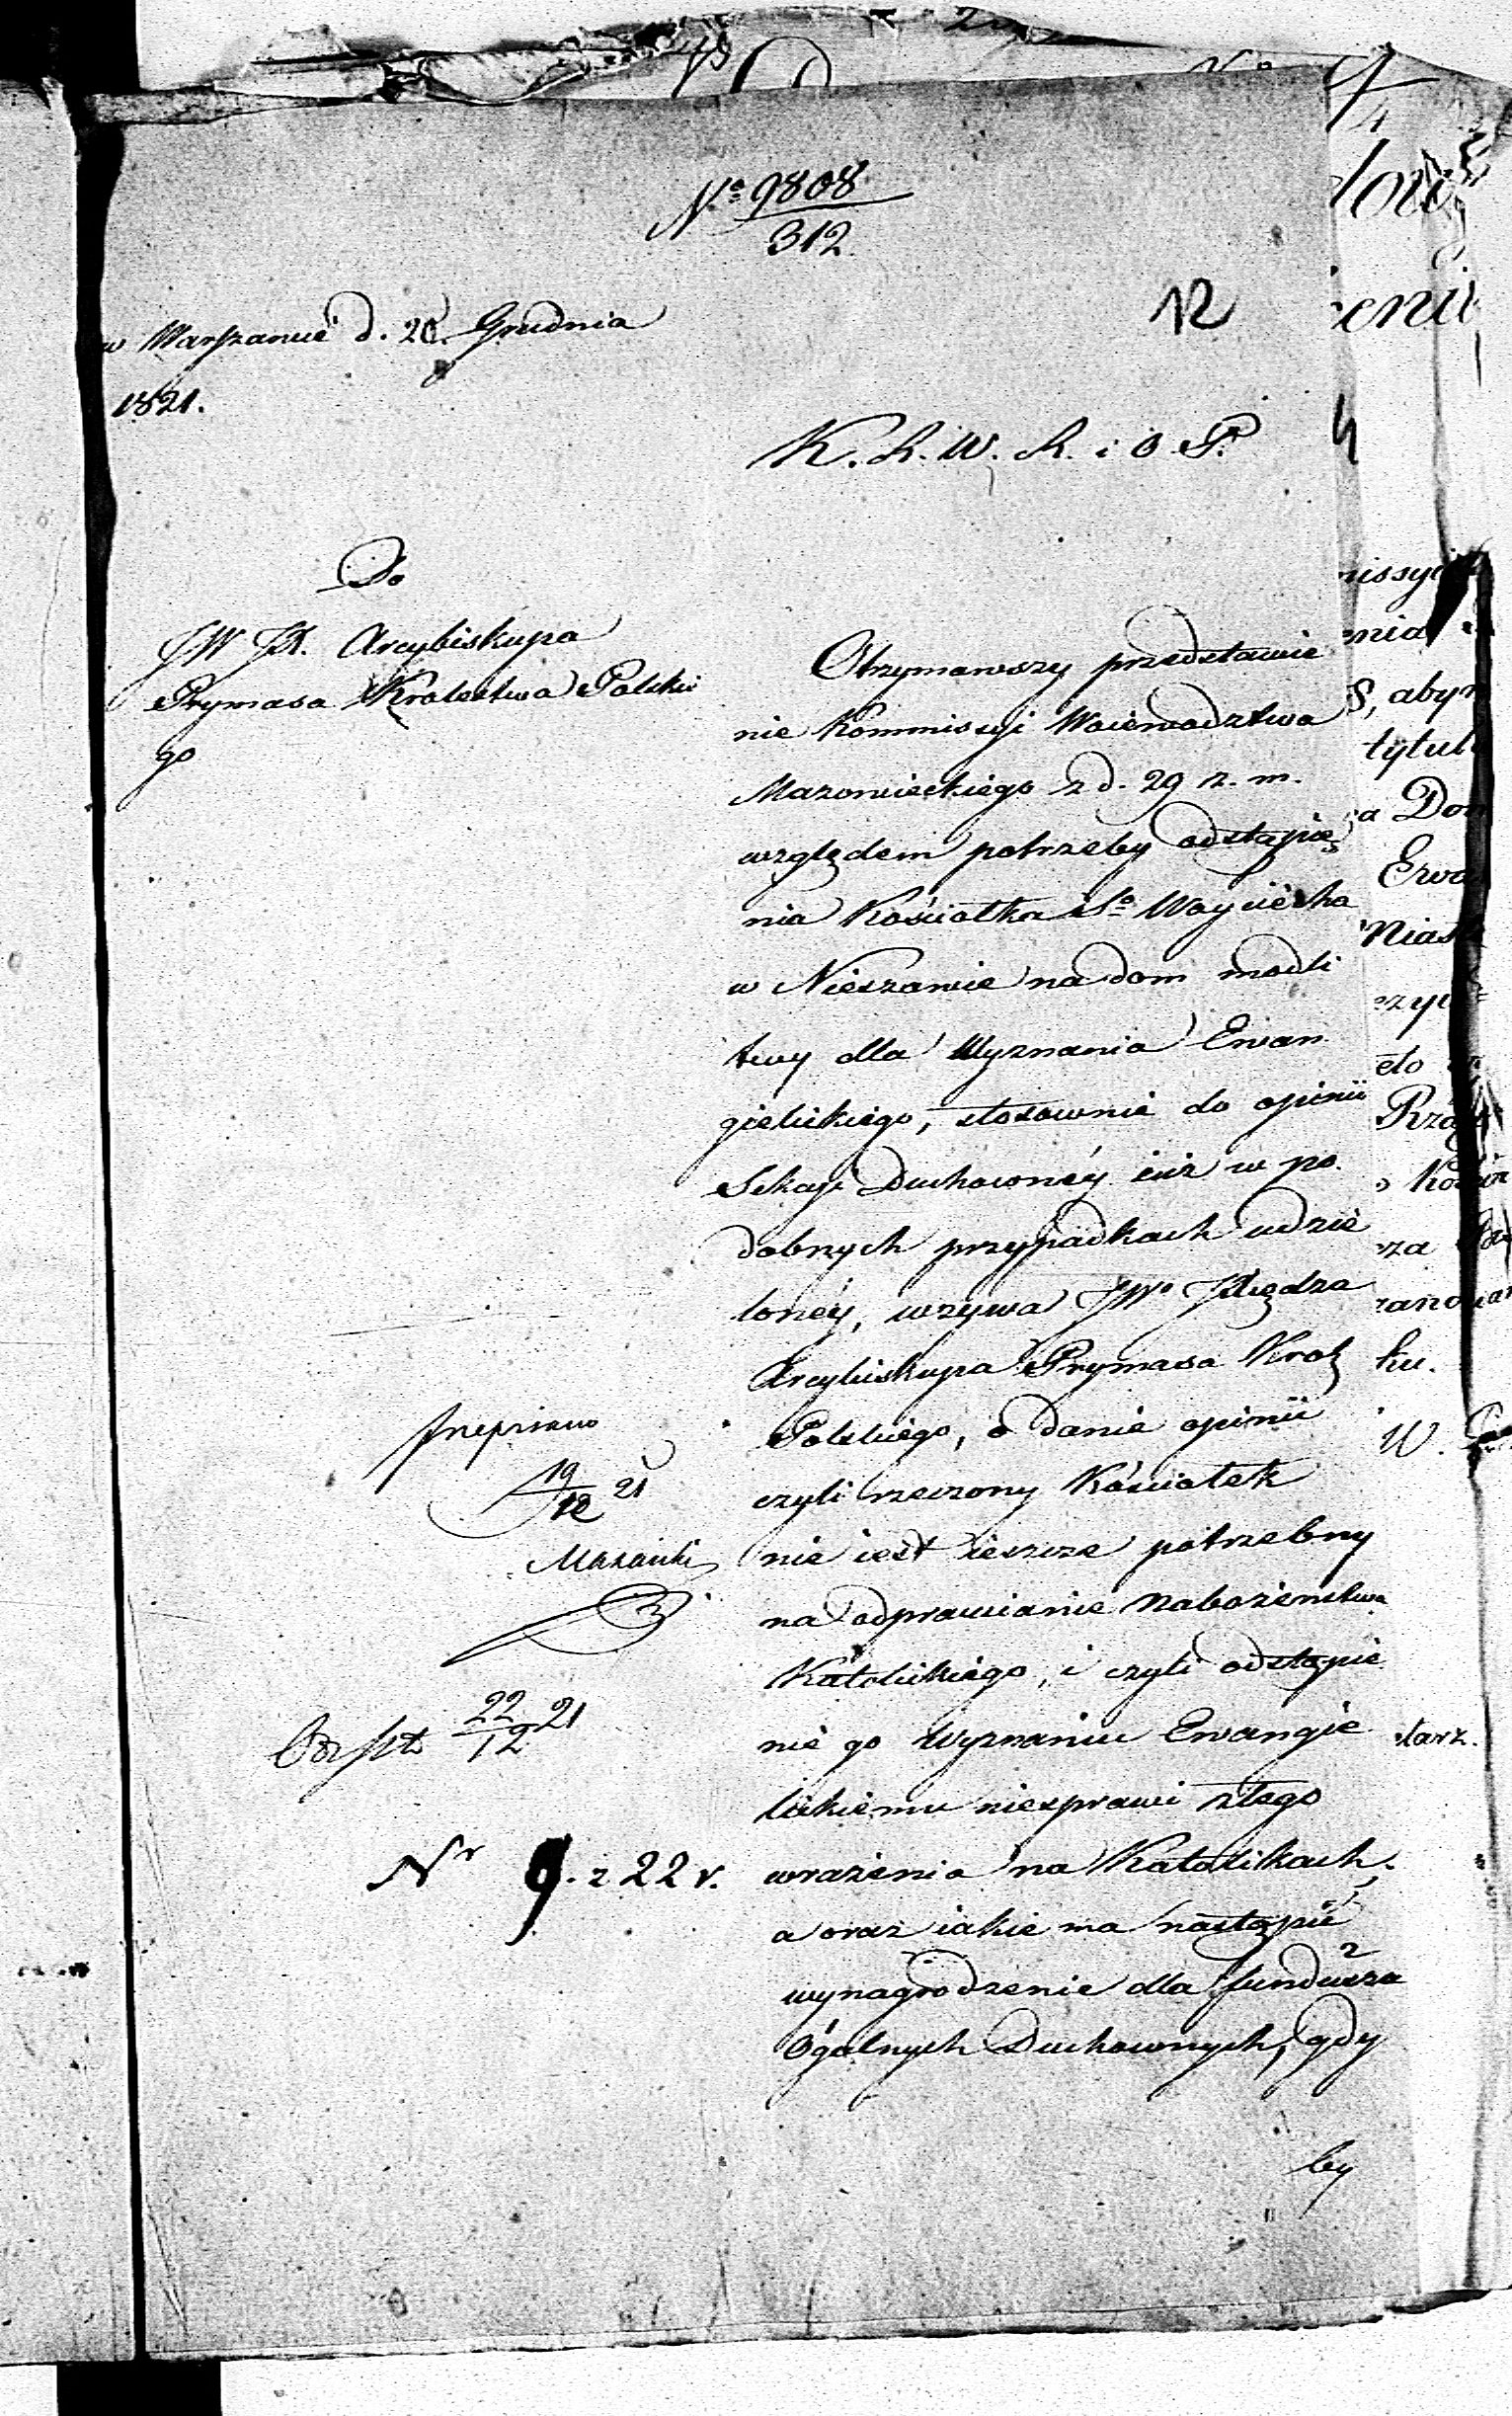 No 9808
312
12
w Warszawie d. 20 Grudnia
1821.
K. R. W. R. i O P.
Do
JW JX. Arcybiskupa
Prymasa Krolestwa Polskie
go
Otrzymawszy przedstawie
nie Kommissyi Woiewodztwa
Mazowieckiego z d. 29 z. m.
względem potrzeby odstąpie
nia Kościołka So Woyciecha
w Nieszawie na dom modli
twy dla Wyznania Ewan
gielickiego, stosownie do opinii
Sekcyi Duchownéy iuż w po
dobnych przypadkach udzie
lonéy, wzywa JWo Xiędza
Arcybiskupa Prymasa Krol
Polskiego, o danie opinii
czyli rzeczony Kościołek
nie iest ieszcze potrzebny
na odprawianie Nabożeństwa
Katolickiego, i czyli odstąpie
nie go Wyznaniu Ewangie
lickiemu niesprawi złego
wrażenia na Katolikach,
a oraz iakie ma nastąpić
wynagrodzenie dla fundusza
Ogólnych Duchownych, gdy
by
przepisano
19/12 21
22/12 21
Nr 9. z 22 r.